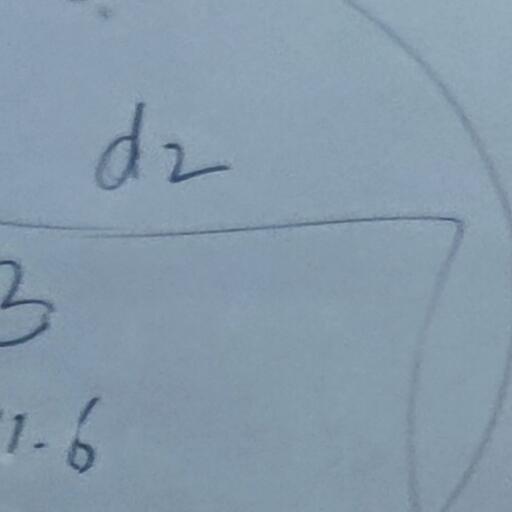 d2
3
1.6